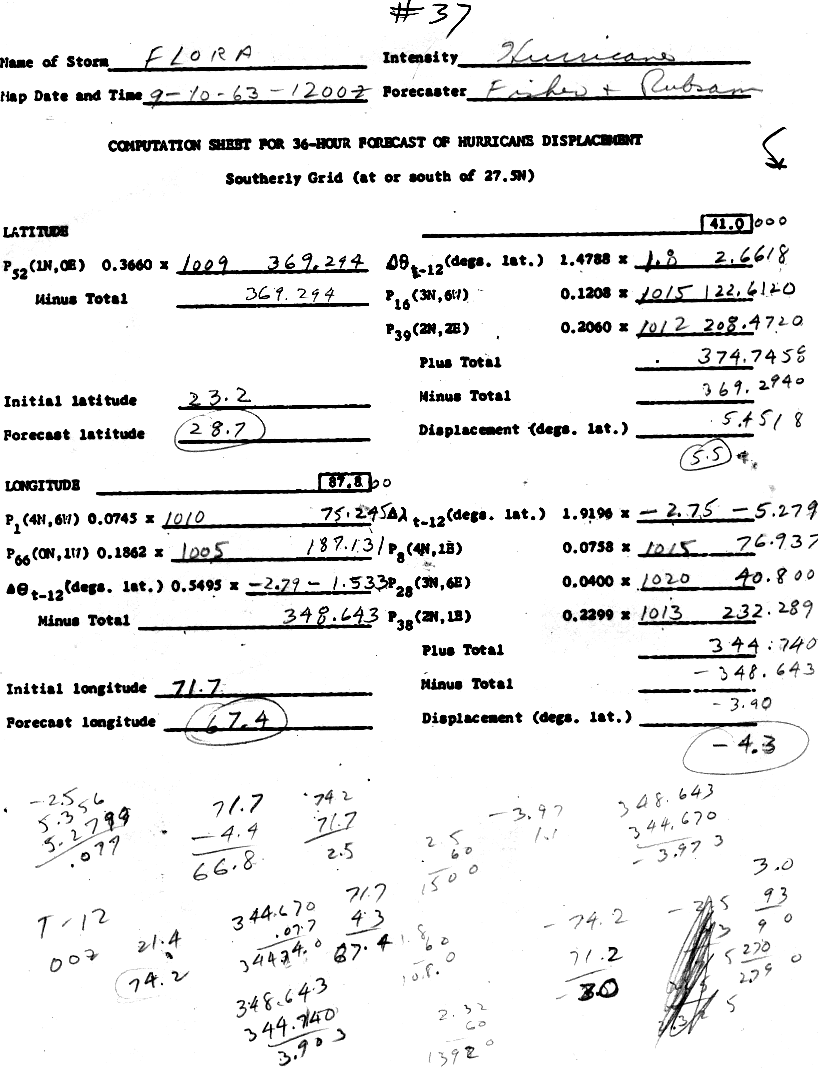 #37
Name of Storm FLORA Intensity Hurricane
Map Date and Time 9-10-63-1200Z Forecaster Fisher + Rubsam
COMPUTATION SHEET FOR 36-HOUR FORECAST OF HURRICANE DISPLACEMENT
Southerly Grid (at or south of 27.5N)
LATITUDE 41.0000
P52(1N,0E) 0.3660 x 1009 369.294 Δθt-12(degs. lat.) 1.4788 x 1.8 2.6618
Minus Total 369.294 P16(3N,6W) 0.1208 x 1015 122.6120
P39(2N,2E) 0.2060 x 1012 208.4720
Plus Total 374.7458
Initial latitude 23.2 Minus Total 369.2940
Forecast latitude 28.7 Displacement (degs. lat.) 5.4518
5.5
LONGITUDE 87.800
P1(4N,6W) 0.0745 x 1010 75.245 Δλt-12(degs. lat.) 1.9196 x -2.75 -5.279
P66(0N,1W) 0.1862 x 1005 187.131 P8(4N,1E) 0.0758 x 1015 76.937
Δθt-12(degs. lat.) 0.5495 x -2.79 - 1.533 P28(3N,6E) 0.0400 x 1020 40.800
Minus Total 348.643 P38(2N,1E) 0.2299 x 1013 232.289
Plus Total 344.740
Initial longitude 71.7 Minus Total -348.643
Forecast longitude 67.4 Displacement (degs. lat.) -3.90
-4.3
-2.5
5.356
5.2799
.077
71.7
-4.4
66.8
74.2
71.7
2.5
2.5
60
1500
-3.97
1.1
348.643
344.670
-3.973
T-12
00Z
21.4
74.2
344.670
.077
344.74.0
71.7
4.3
67.4
348.643
344.740
3.903
1.8
60
10.8.0
2.32
60
1392
-74.2
71.2
-3.0
3.0
93
9 0
270
279 0